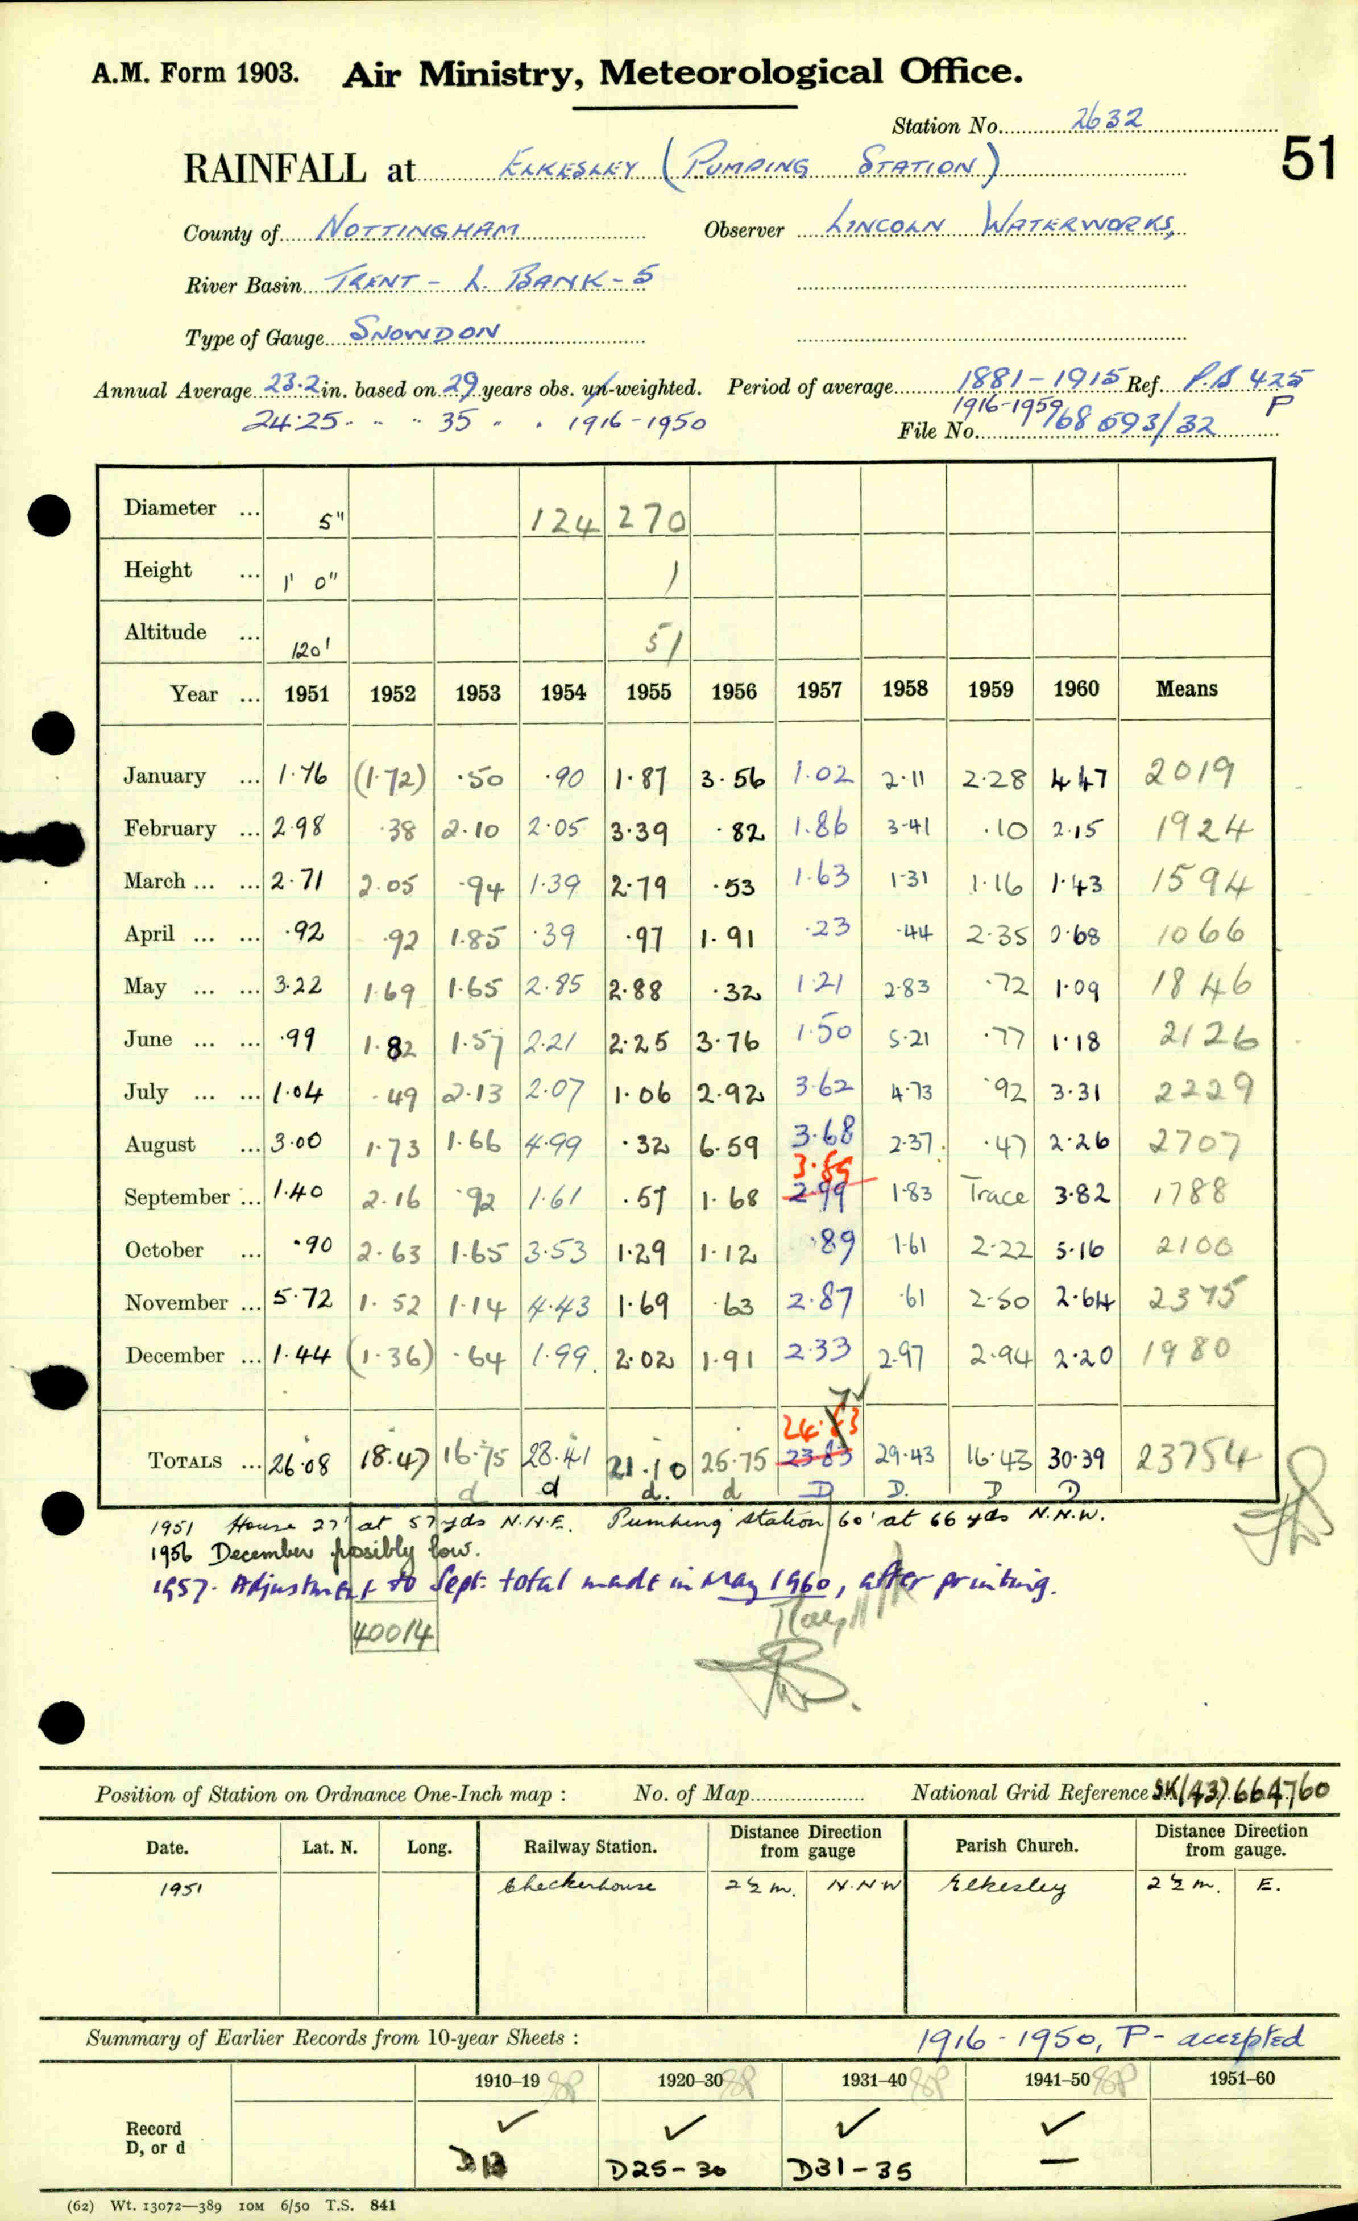 A.M. Form 1903. Air Ministry, Meteorological Office.
Station No. 2632
51
RAINFALL at ELKESLEY (PUMPING STATION)
County of NOTTINGHAM Observer LINCOLN WATERWORKS,
River Basin TRENT - L. BANK - 5
Type of Gauge SNOWDON
Annual Average 23.2 in. based on 29 years obs. un-weighted. Period of average 1881-1915 Ref. P.B 425
24.25 " " 35 " " 1916-1950 1916-1950 P
File No. 768593/32
Diameter ... 5" 124 270
Height ... 1' 0" 1
Altitude ... 120' 51
Year ... 1951 1952 1953 1954 1955 1956 1957 1958 1959 1960 Means
January ... 1.76 (1.72) .50 .90 1.87 3.56 1.02 2.11 2.28 4.47 2019
February ... 2.98 .38 2.10 2.05 3.39 .82 1.86 3.41 .10 2.15 1924
March ... ... 2.71 2.05 .94 1.39 2.79 .53 1.63 1.31 1.16 1.43 1594
April ... ... .92 .92 1.85 .39 .97 1.91 .23 .44 2.35 0.68 1066
May ... ... 3.22 1.69 1.65 2.85 2.88 .32 1.21 2.83 .72 1.09 1846
June ... ... .99 1.82 1.57 2.21 2.25 3.76 1.50 5.21 .77 1.18 2126
July ... ... 1.04 .49 2.13 2.07 1.06 2.92 3.62 4.73 .92 3.31 2229
August ... 3.00 1.73 1.66 4.99 .32 6.59 3.68 2.37 .47 2.26 2707
3.89
September ... 1.40 2.16 .92 1.61 .57 1.68 2.99 1.83 Trace 3.82 1788
October ... .90 2.63 1.65 3.53 1.29 1.12 .89 1.61 2.22 5.16 2100
November ... 5.72 1.52 1.14 4.43 1.69 .63 2.87 .61 2.50 2.64 2375
December ... 1.44 (1.36) .64 1.99 2.02 1.91 2.33 2.97 2.94 2.20 1980
7
24.
TOTALS ... 26.08 18.47 16.75 28.41 21.10 25.75 23.83 29.43 16.43 30.39 23754
d d d. d D D. D D
1951 House 27' at 57 yds N.N.E. Pumping station 60' at 66 yds N.N.W.
1956 December possibly low.
1957. Adjustment to Sept. total made in May 1960, after printing.
40014
Position of Station on Ordnance One-Inch map : No. of Map National Grid Reference SK(43) 664760
Date. Lat. N. Long. Railway Station. Distance from gauge Direction Parish Church. Distance from gauge. Direction
1951 Checkerhouse 2½ m. N.NW Elkesley 2½ m. E.
Summary of Earlier Records from 10-year Sheets : 1916-1950, P - accepted
1910–19 1920–30 1931–40 1941–50 1951–60
Record ✓ ✓ ✓ ✓
D, or d D25-30 D31-35 —
(62) Wt. 13072—389 10M 6/50 T.S. 841